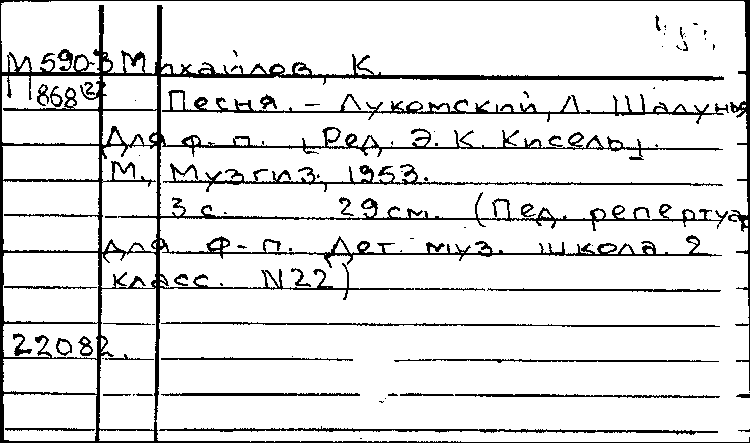 М590-3 Михайлов, К.
П868(22) Песня. - Лукомский, Л. Шалунья
Для ф-п. [Ред. Э. К. Кисель].
М., Музгиз, 1953.
3 с. 29 см. (Пед. репертуар
для ф-п. Дет. муз. школа. 2
класс. N22)
22082.